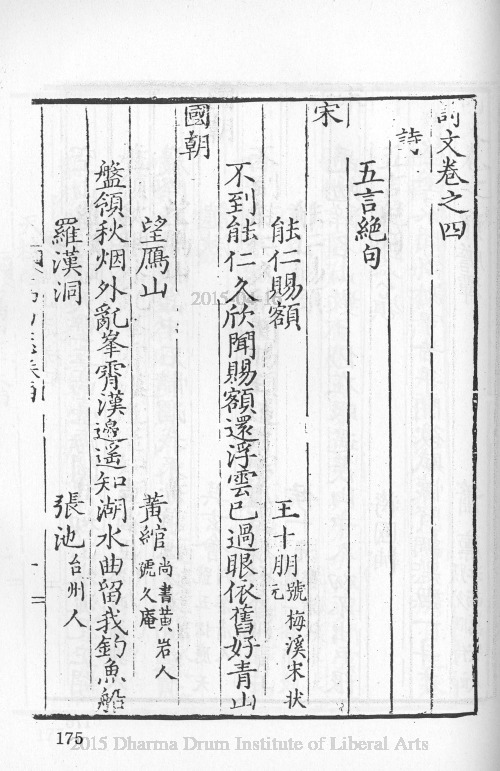 詩文卷之四
詩
五言絕句
宋
能仁賜額 王十朋 號梅溪宋狀元
不到能仁久欣聞賜額還浮雲已過眼依舊好青山
國朝
望鴈山 黃綰 尚書黃岩人號久庵
盤領秋烟外亂峯霄漢邊遥知湖水曲留我釣魚船
羅漢洞 張池 台州人
175
2015 Dharma Drum Institute of Liberal Arts